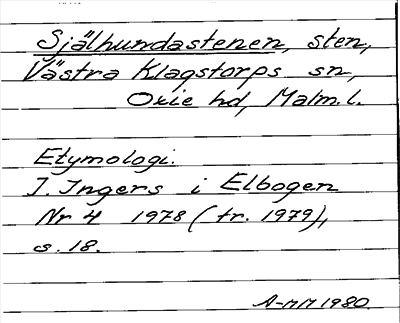 Själhundastenen, sten,
Västra Klagstorps sn,
Oxie hd, Malm.l.
Etymologi.
I. Ingers i Elbogen
Nr 4 1978 (tr. 1979),
s. 18.
A-MM 1980.